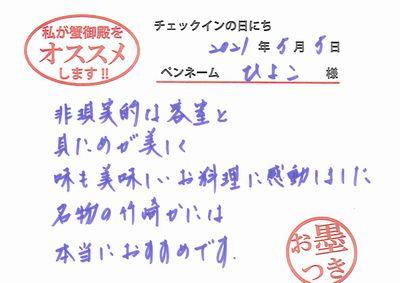 私が蟹御殿を
オススメ
します!!
チェックインの日にち
2021年5月5日
ペンネーム ひよこ 様
非現実的な客室と
見ためが美しく
味も美味しいお料理に感動しました
名物の竹崎かには
本当におすすめです.
お墨
つき